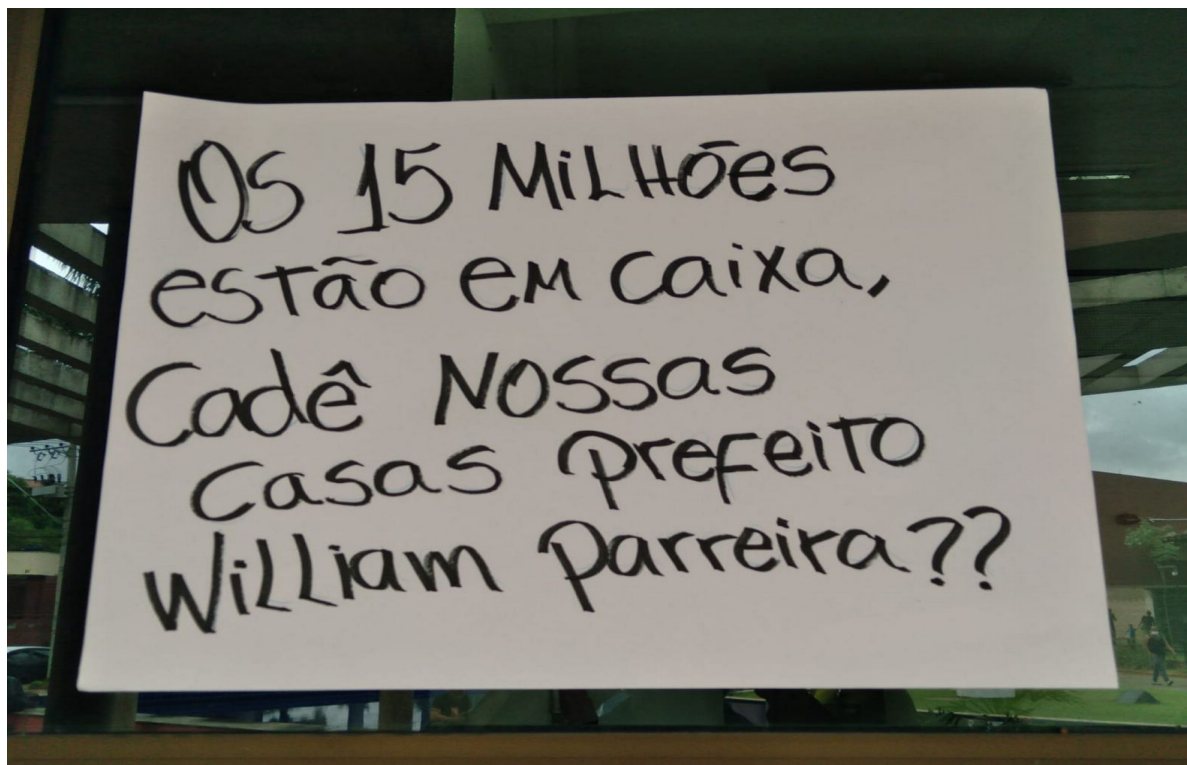 Os 15 MiLHões
estão em caixa,
Cadê Nossas
casas prefeito
William parreira??